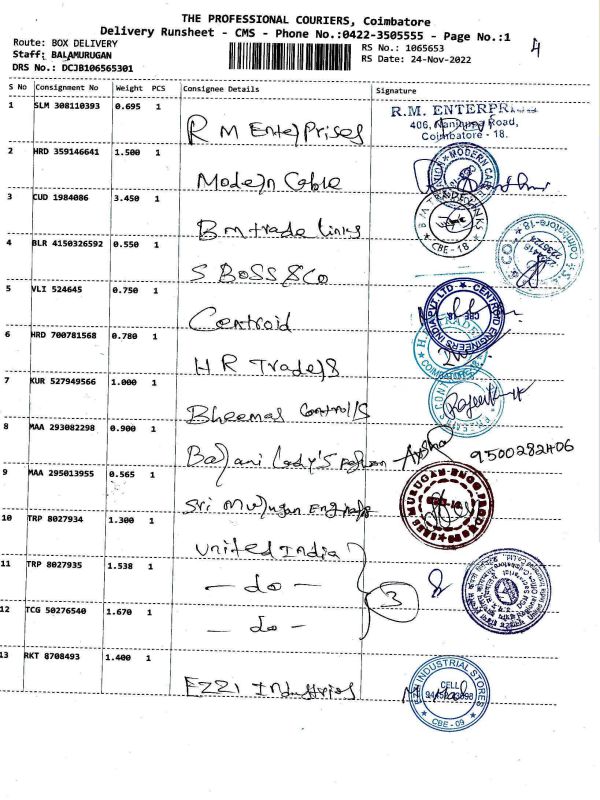 THE PROFESSIONAL COURIERS, Coimbatore
Delivery Runsheet - CMS - Phone No.:0422-3505555 - Page No.:1
Route: BOX DELIVERY
RS No.: 1065653
4
Staff: BALAMURUGAN
RS Date: 24-Nov-2022
DRS No.: DCJB106565301
S No Consignment No Weight PCS Consignee Details Signature
1 SLM 308110393 0.695 1 R M Enterprises
R.M. ENTERPRISES
406, Nanjunda Road,
Coimbatore - 18.
2 HRD 359146641 1.500 1 Modern Cable
MODERN CABLE
3 CUD 1984086 3.450 1 B m trade links
B M TRADE LINKS
CBE - 18
4 BLR 4150326592 0.550 1 S BOSS & CO
& CO
Coimbatore-18
5 VLI 524645 0.750 1 Centroid
CENTROID ENGINEERS INDIA PVT LTD
CBE-18
6 HRD 700781568 0.780 1 H R Traders
7 KUR 527949566 1.000 1 Bheemas Controlls
8 MAA 293082298 0.900 1 Balani Lady's
9500282406
9 MAA 295013955 0.565 1 Sri Murugan
MURUGAN ENGG PRODUCTS
10 TRP 8027934 1.300 1 United India
11 TRP 8027935 1.538 1 - do -
3
12 TCG 50276540 1.670 1 - do -
13 RKT 8708493 1.400 1 EZZI Industries
EZZI INDUSTRIAL STORES
CELL
CBE - 09